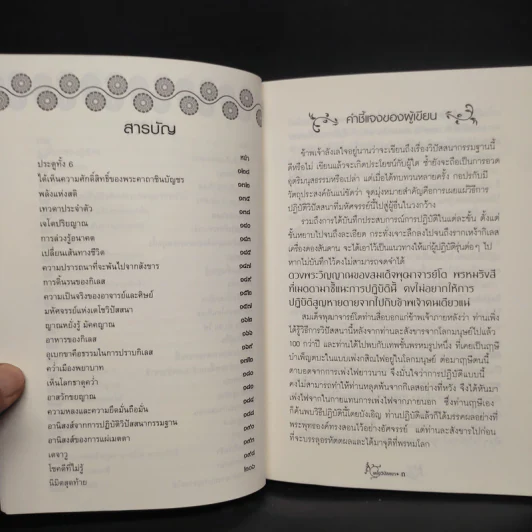 สารบัญ
หน้า
ประตูทั้ง 6
ได้เห็นความศักดิ์สิทธิ์ของพระคาถาชินบัญชร
พลังแห่งสติ
เทวดาประจำตัว
เจโตปริยญาณ
การล่วงรู้อนาคต
เปลี่ยนเส้นทางชีวิต
ความปรารถนาที่จะพ้นไปจากสังขาร
การดิ้นรนของกิเลส
ความเป็นจริงของอาจารย์และศิษย์
มหัศจรรย์แห่งเตโชวิปัสสนา
ญาณหยั่งรู้ มัคคญาณ
อาหารของกิเลส
อุเบกขาคือธรรมในการปราบกิเลส
คว่ำเมืองพยาบาท
เห็นโลกธาตุคว่ำ
อาสวักขยญาณ
ความหลงและความยึดมั่นถือมั่น
อานิสงส์จากการปฏิบัติวิปัสสนากรรมฐาน
อานิสงส์ของการแผ่เมตตา
เดจาวู
โชคดีที่ไม่รู้
นิมิตสุดท้าย
คำชี้แจงของผู้เขียน
ข้าพเจ้าลังเลใจอยู่นานว่าจะเขียนถึงเรื่องวิปัสสนากรรมฐานนี้
ดีหรือไม่ เขียนแล้วจะเกิดประโยชน์กับผู้ใด ซ้ำยังจะถือเป็นการอวด
อุตริมนุสธรรมหรือเปล่า แต่เมื่อได้ทบทวนหลายครั้ง กอปรกับมี
วัตถุประสงค์อันแน่ชัดว่า จุดมุ่งหมายสำคัญคือการเผยแผ่วิธีการ
ปฏิบัติวิปัสสนาที่มหัศจรรย์นี้ไปสู่ผู้อื่นในวงกว้าง
รวมถึงการได้บันทึกประสบการณ์การปฏิบัติในแต่ละขั้น ตั้งแต่
ขั้นหยาบไปจนถึงละเอียด กระทั่งเจาะลึกลงไปจนถึงรากเหง้ากิเลส
เครื่องดองสันดาน จะได้เอาไว้เป็นแนวทางให้แก่ผู้ปฏิบัติรุ่นต่อๆ ไป
หากไม่บันทึกไว้คงไม่สามารถจดจำได้
ดวงพระวิญญาณของสมเด็จพุฒาจารย์โต พรหมรังสี
ที่เมตตามาชี้แนะการปฏิบัตินี้ คงไม่อยากให้การ
ปฏิบัติสูญหายตายจากไปกับข้าพเจ้าคนเดียวแน่
สมเด็จพุฒาจารย์โตท่านสื่อบอกแก่ข้าพเจ้าภายหลังว่า ท่านเพิ่ง
ได้รู้วิธีการวิปัสสนานี้หลังจากท่านละสังขารจากโลกมนุษย์ไปแล้ว
100 กว่าปี และท่านได้ไปพบกับเทพชั้นพรหมรูปหนึ่ง ที่เคยเป็นฤๅษี
บำเพ็ญตบะในแบบเพ่งกสิณไฟอยู่ในโลกมนุษย์ ต่อมาฤๅษีตนนี้
คงไม่สามารถทำให้ท่านหลุดพ้นจากกิเลสอย่างที่หวัง จึงได้หันมา
เพ่งไฟจากในกายแทนการเพ่งไฟจากภายนอก ซึ่งท่านฤๅษีเอง
ก็ค้นพบวิธีปฏิบัตินี้โดยบังเอิญ ท่านปฏิบัติแล้วก็ได้มรรคผลอย่างที่
พระพุทธองค์ทรงสอนไว้อย่างอัศจรรย์ แต่ท่านละสังขารไปก่อน
ที่จะบรรลุอรหัตตผลและได้มาจุติที่พรหมโลก